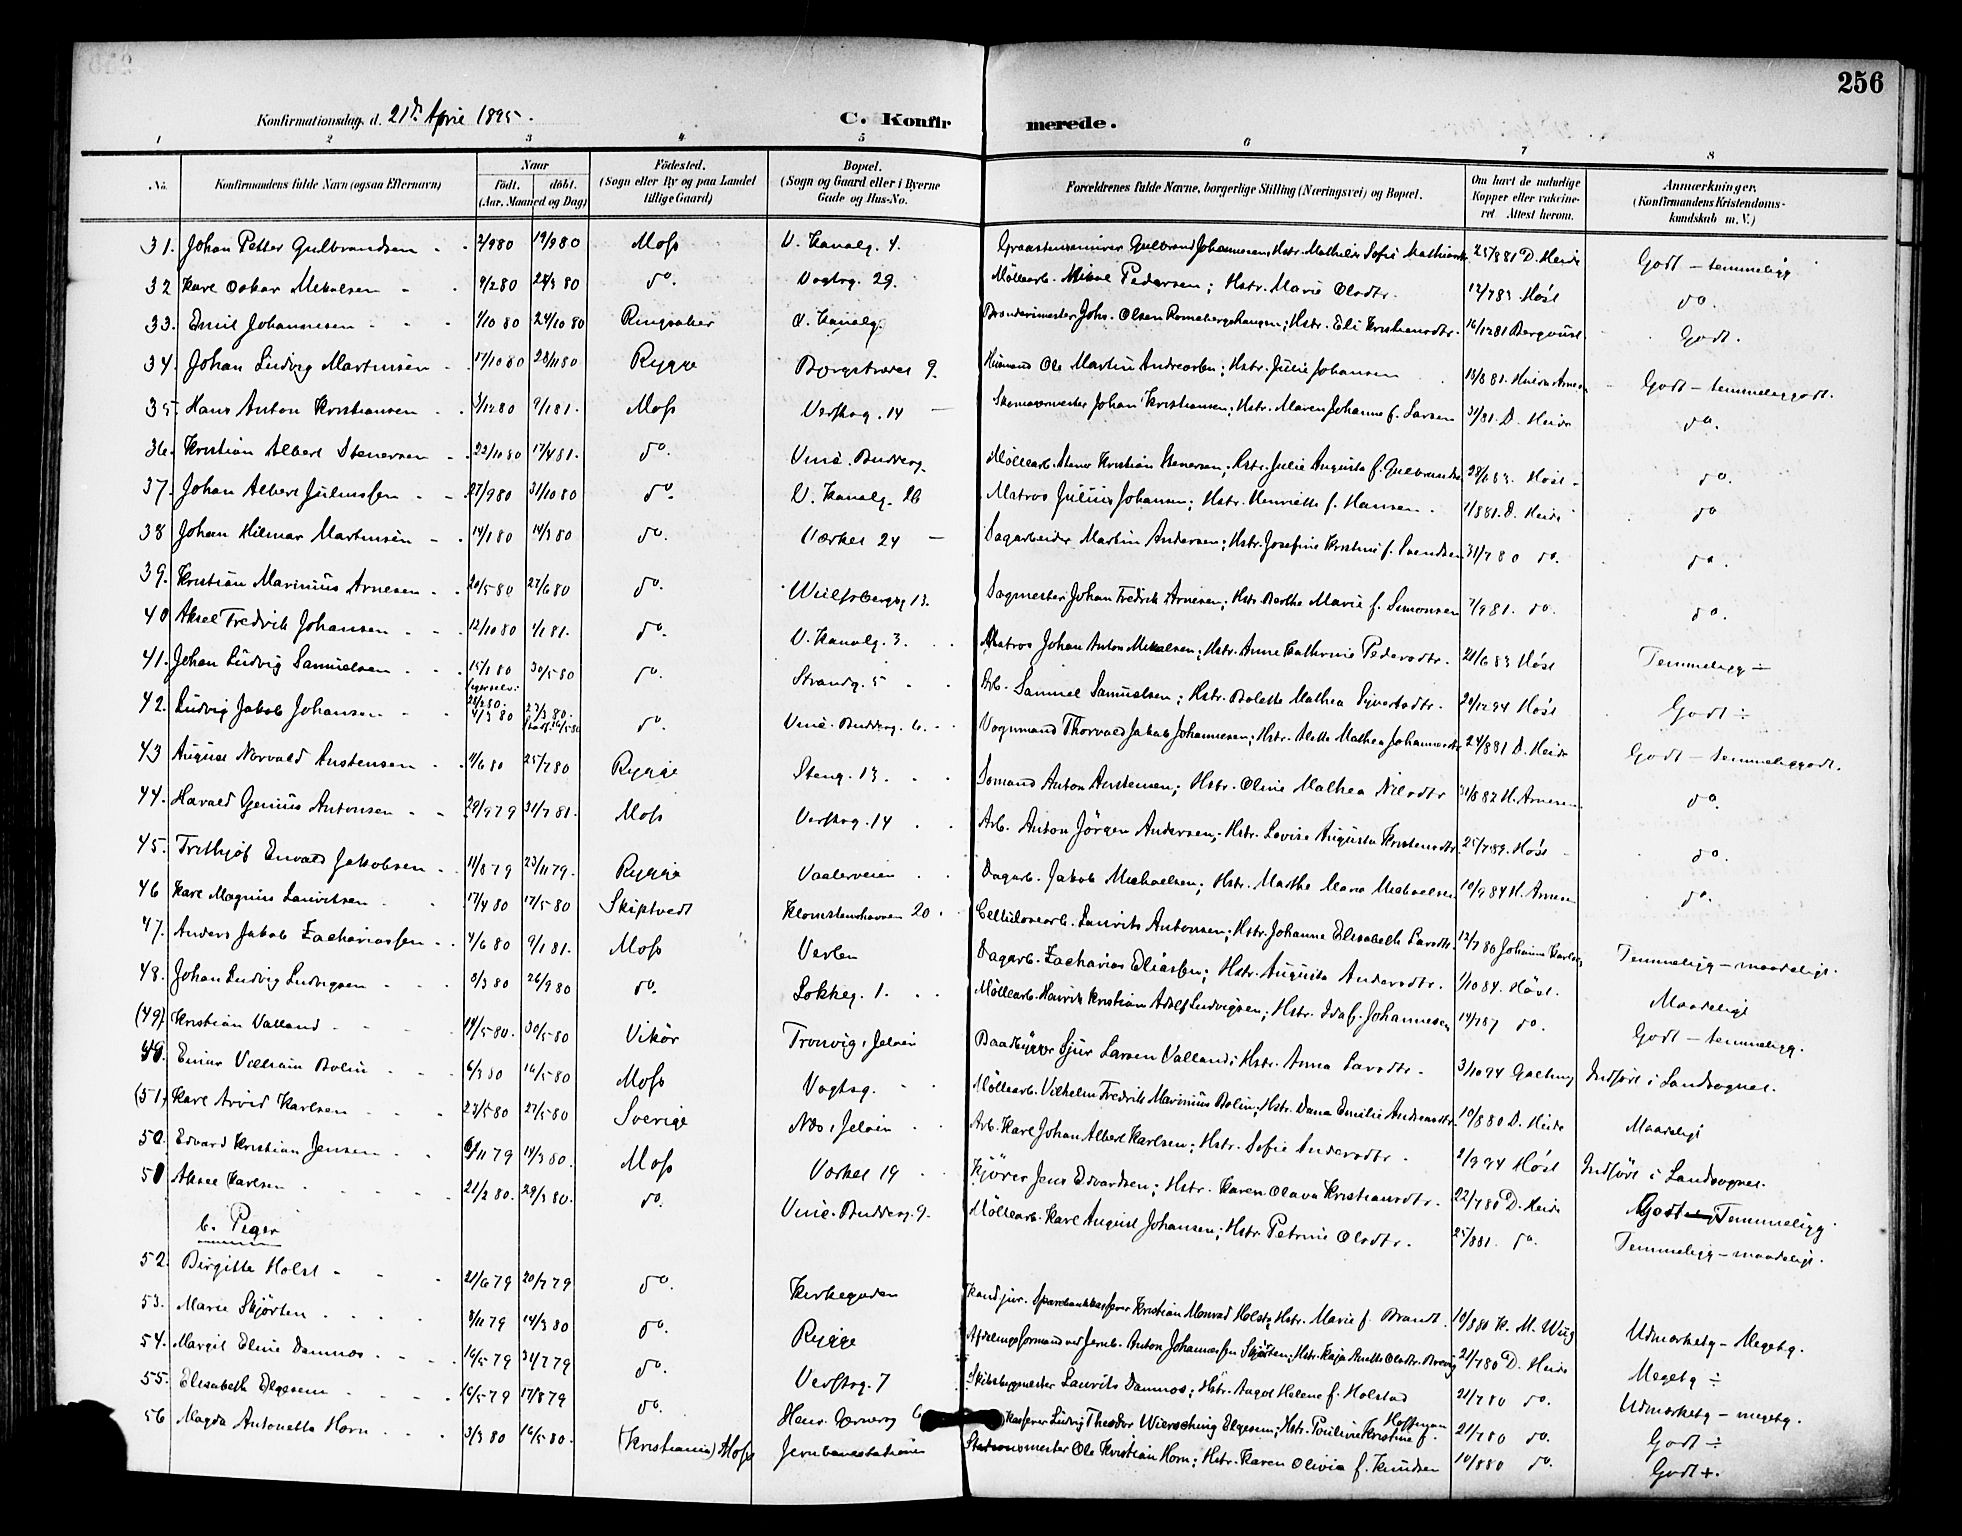 256
Konfirmationsdag d. 21de April 1895.
C. Konfirmerede.
1 2 3 4 5 6 7 8
No. Konfirmandens fulde Navn (ogsaa Efternavn) Naar födt. döbt. (Aar, Maaned og Dag) Födested. (Sogn eller By og paa Landet tillige Gaard) Bopæl. (Sogn og Gaard eller i Byerne Gade og Hus-No. Forældrenes fulde Navne, borgerlige Stilling (Næringsvei) og Bopæl. Om havt de naturlige Kopper eller vakcineret. Attest herom. Anmærkninger. (Konfirmandens Kristendomskundskab m. V.)
31. Johan Petter Gulbrandsen 2/9 80 19/9 80 Moss V. Kanalg. 4. Gulbrand Johannesen, Hstr. Mathilde Sofie 25/8 81 D. Heide Godt - temmeligg
32 Karl Oskar Mikalsen 9/2 80 28/3 80 do. Vogtsg. 29. Möllearb. Mikal Pedersen; Hstr. Marie Olsdtr. 12/7 83 Höst do.
33. Emil Johannesen 1/10 80 24/10 80 Ringsaker V. Kanalg. Johs. Olsen; Hstr. Eli Kristiansdtr. 16/12 81 Godt.
34. Johan Ludvig Martinsen 17/10 80 28/11 80 Rygge 9. Husmand Ole Martin Andreassen; Hstr. Julie Johansen 13/8 81. Godt - temmeliggodt.
35. Hans Anton Kristiansen 3/12 80 9/1 81. Moss Verftsg. 14 Skomagermester Johan Kristiansen; Hstr. Maren Johanne f. Larsen D. Heide do.
36. Kristian Albert Stenersen 22/10 80 17/4 81. do. Möllearb. Kristian Stenersen; Hstr. Julie Augusta f. Gulbrandsen Höst do.
37. Johan Albert Juliussen 27/9 80 31/10 80 do. V. Kanalg. 26 Matros Julius Johansen; Hstr. Henriette f. Hansen. 1/8 81. D. Heide do
38 Johan Hilmar Martinsen 14/1 80 14/3 80 do. Værket 24 Sagarbeider Martin Andersen; Hstr. Josefine Kristine f. Svendsen 31/7 80 do. do.
39. Kristian Marinius Arnesen 20/5 80 27/6 80 do. 13. Sagmester Johan Fredrik Arnesen; Hstr. Berthe Marie f. Simonsen 7/9 81. do. do.
40 Aksel Fredrik Johansen 12/10 80 1/1 81. do. V. Kanalg. 3. Matros Johan Anton Mikalsen; Hstr. Anne Kathrine Pedersdtr. 21/6 83 Höst Temmeligg ÷
41. Johan Ludvig Samuelsen 15/1 80 30/5 80 do. Strandg. 5 Arb. Samuel Samuelsen; Hstr. Bolette Mathea Syvertsdtr. 20/12 94 Höst Godt ÷
42. Ludvig Jakob Johansen 4/3 80 do. 6. Vognmand Thorvald Jakob Johannesen; Hstr. Alette Mathea Johannesdtr. 24/8 81 D. Heide Godt - temmeliggodt.
43 August Norvald Anstensen 11/6 80 25/7 80 Rygge Steng. 13. Sömand Anton Anstensen; Hstr. Oline Mathea Nilsdtr 31/8 82 H. Arnesen do.
44. Harald Genius Antonsen 28/9 79 31/7 81. Moss Verftsg. 14 Arb. Anton Jörgen Andersen; Hstr. Lovise Augusta Kristensdtr. 25/7 89. Höst do.
45. Frithjof Envald Jakobsen 11/8 79 23/11 79. Rygge Vaalerveien Dagarb. Jakob Mikaelsen; Hstr. Marthe Maria Mikaelsen 10/9 84 H. Arnesen do.
46 Karl Magnus Lauritsen 17/4 80 17/5 80 Skiptvedt 20. Cellulosearb. Laurits Antonsen; Hstr. Johanne Elisabeth Larsdtr. 12/7 80 Temmeligg - maadeligt.
47. Anders Jakob Zachariassen 4/6 80 9/1 81. Moss Verlen Dagarb. Zacharias Eliassen; Hstr. Augusta Andersdtr. 1/10 84. Höst. Maadeligt
48. Johan Ludvig Ludvigsen 3/3 80 26/9 80 do. Lökkeg. 1. Möllearb. Henrik Kristian Adolf Ludvigsen; Hstr. Ida f. Johannesen 14/7 87 do. Godt - temmeligg.
(49) Kristian Valland 14/5 80. 30/5 80 Vikör Tronvig, Jelöen Baadbygger Sjur Larsen Valland; Hstr. Anna Larsdtr. 3/10 94 Galtung Indfört i Landsognet.
49. Einar Vilhelm Bolin 6/3 80 16/5 80 Moss Vogtsg. Möllearb. Vilhelm Fredrik Marinius Bolin; Hstr. Dana Emilie Andreasdtr. 10/8 80 D. Heide Maadeligt
(51) Karl Arvid Karlsen 23/5 80 27/5 80 Sverige Næs, Jelöen Arb. Karl Johan Albert Karlsen; Hstr. Sofie Andersdtr. 2/9 94 Höst Indfört i Landsognet.
50. Edvard Kristian Jensen 6/11 79 14/3 80. Moss Værket 19 Kjörer Jens Edvardsen; Hstr. Karen Olava Kristiansdtr. 22/7 80 D. Heide Godt Temmeligg
51 Aksel Karlsen 21/2 80. 29/3 80. do. 9. Möllearb. Karl August Johansen; Hstr. Petrine Olsdtr. 25/8 81. do. Temmeligg - maadeligt.
b. Piger
52. Birgitte Holst 21/6 79 20/7 79 do. Kirkegaden Kand. jur. Sparebankkasserer Kristian Monrad Holst; Hstr. Marie f. Brandt. 14/8 80 K. M. Wug Udmærketg - Megetg.
53. Marie Skjörten 8/11 79 14/3 80 do. Rygge Afdelingsformand ved Jernb. Anton Johannessen Skjörten; Hstr. Kaja Anette Olsdtr. 21/7 80 D. Heide Megetg ÷
54. Margit Eline Damnæs 16/5 79 31/7 79 do. Verftsg. 7 Skibsbygmester Laurits Damnæs; Hstr. Aagot Helene f. Holstad 21/7 80 do. Udmærketg - megetg.
55. Elisabeth Elgesem 16/5 79 17/8 79 do. Henr. Gernersg 6 Kasserer Ludvig Theodor Elgesem; Hstr. Pouline Kristine f. Hoffmann 21/7 80 do. Godt ÷
56 Magda Antonette Horn 3/3 80 16/5 80. (Kristiania) Moss Jernbanestationen Stationsmester Ole Kristian Horn; Hstr. Karen Olivia f. Knudsen 10/8 80 do. Godt +.